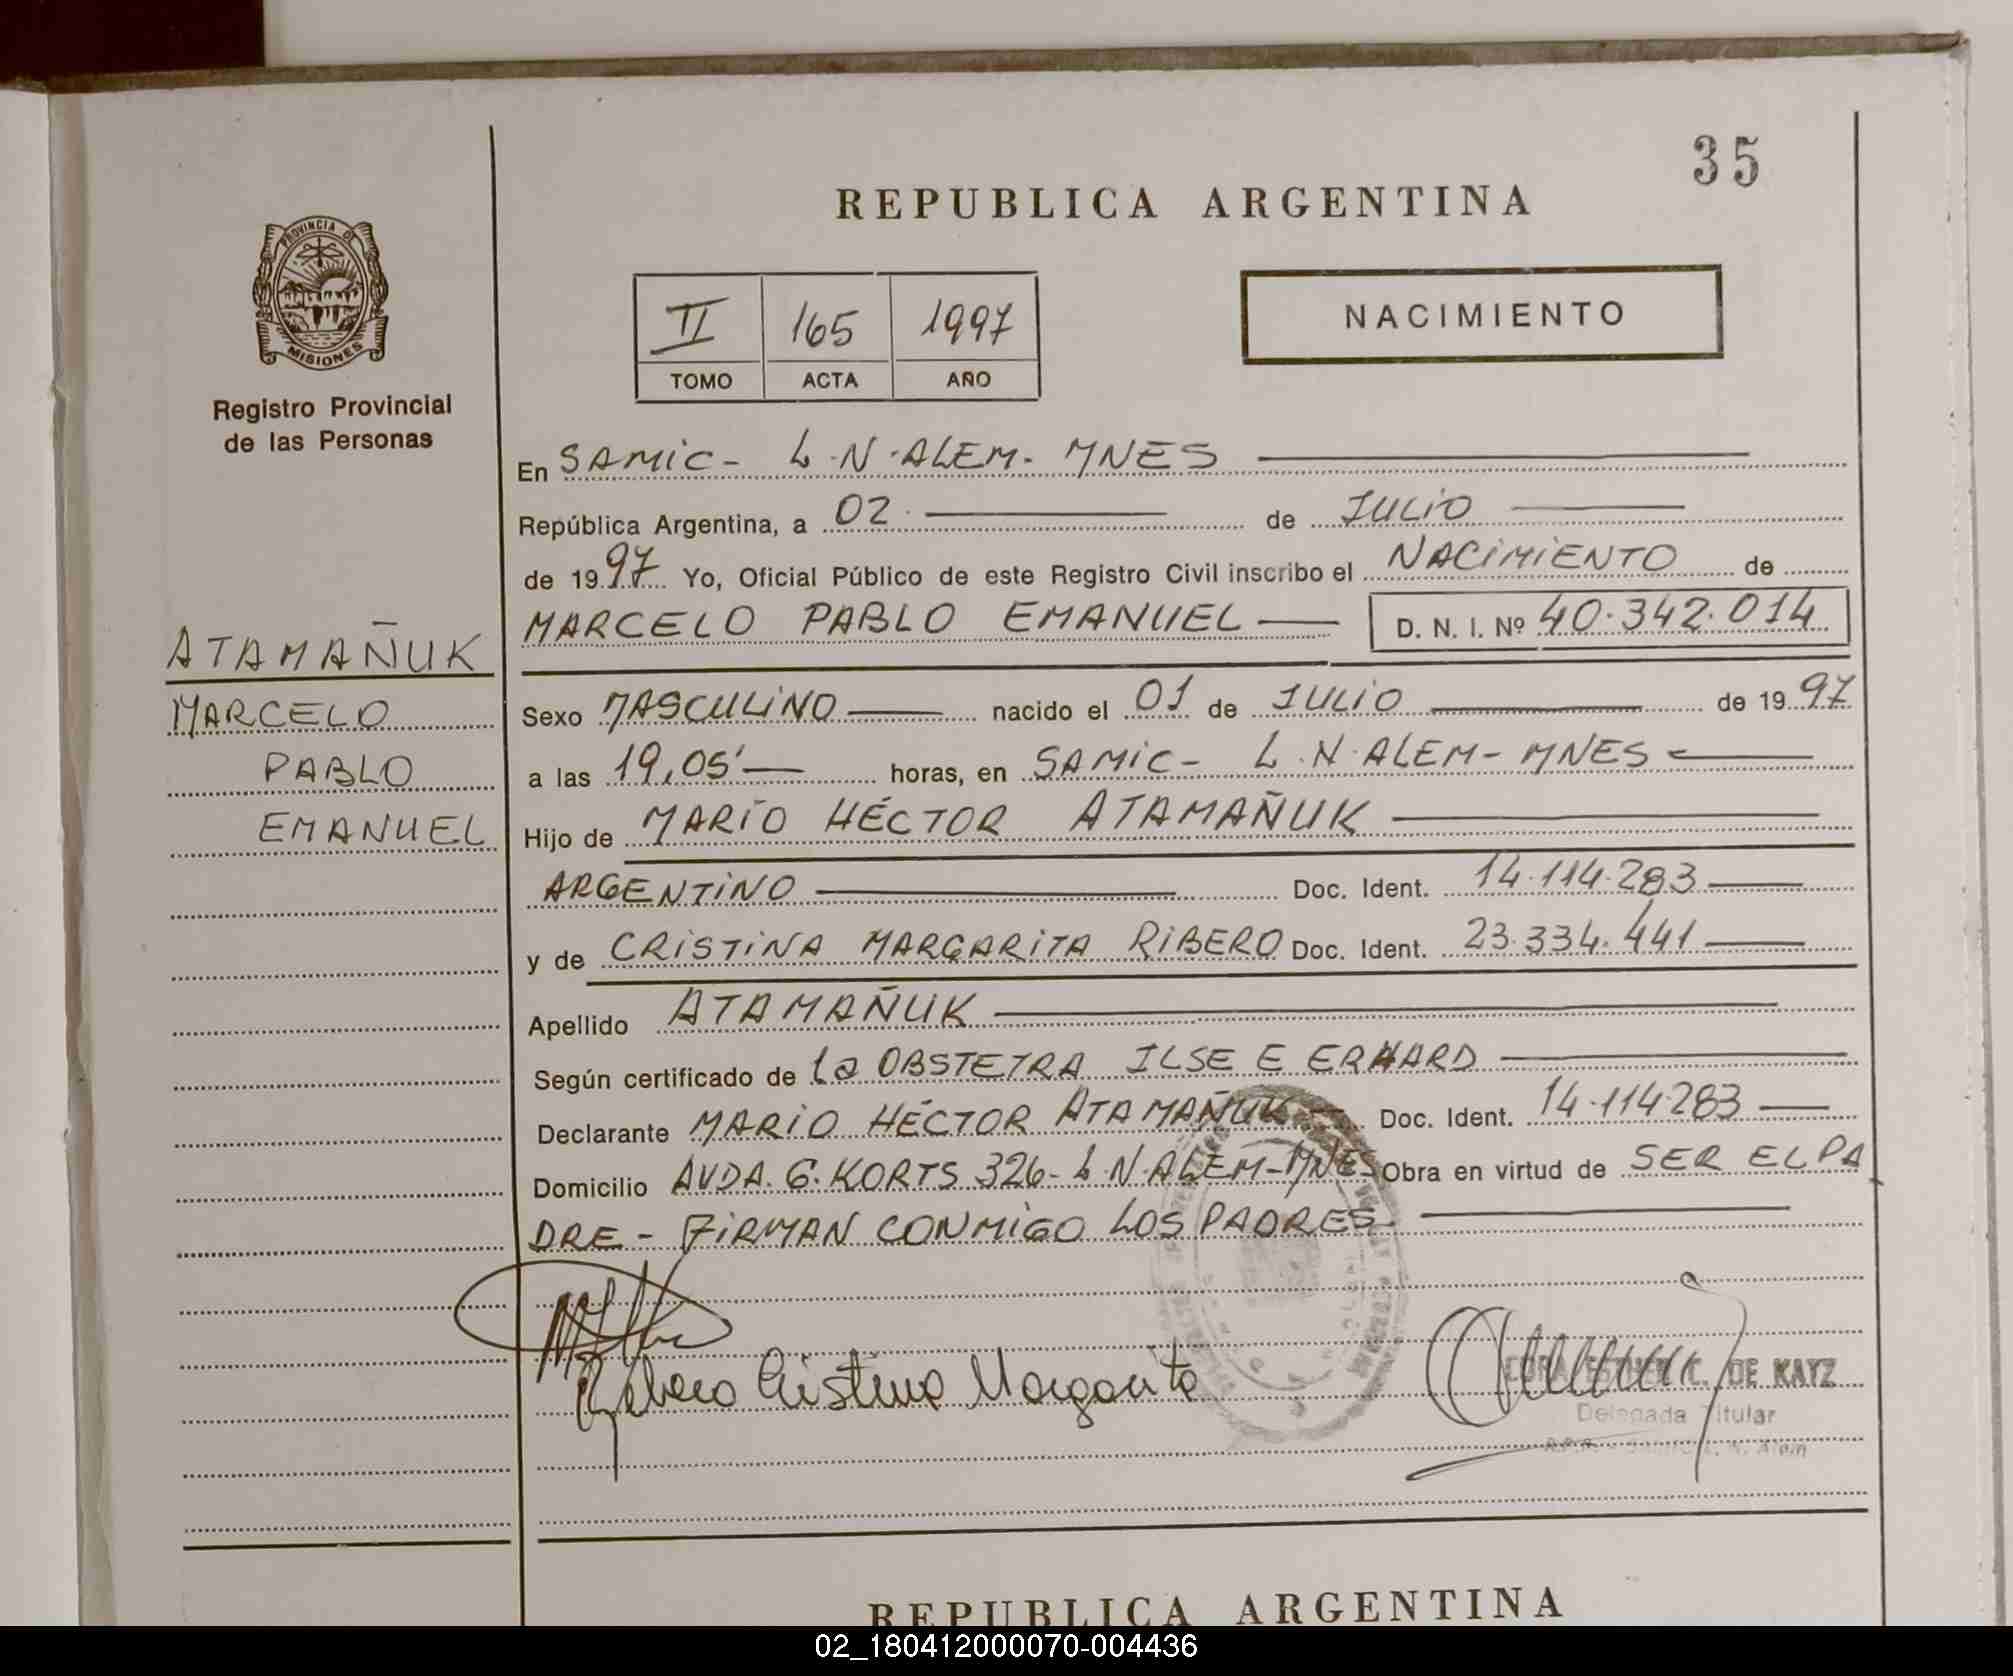 35
REPUBLICA ARGENTINA
PROVINCIA DE
MISIONES
Registro Provincial
de las Personas
II 165 1997
TOMO ACTA AÑO
NACIMIENTO
En SAMIC - L.N. ALEM - MNES
República Argentina, a 02 de JULIO
de 1997 Yo, Oficial Público de este Registro Civil inscribo el NACIMIENTO de
MARCELO PABLO EMANUEL D. N. I. Nº 40.342.014
ATAMAÑUK
MARCELO
PABLO
EMANUEL
Sexo MASCULINO nacido el 01 de JULIO de 1997
a las 19,05' horas, en SAMIC - L.N. ALEM - MNES
Hijo de MARIO HÉCTOR ATAMAÑUK
ARGENTINO Doc. Ident. 14.114.283
y de CRISTINA MARGARITA RIBERO Doc. Ident. 23.334.441
Apellido ATAMAÑUK
Según certificado de la OBSTETRA ILSE E ERHARD
Declarante MARIO HÉCTOR ATAMAÑUK Doc. Ident. 14.114283
Domicilio AVDA. G. KORTS 326 - L.N. ALEM - MNES Obra en virtud de SER EL PA
DRE - FIRMAN CONMIGO LOS PADRES
Cristina Margarita
DE KAYZ
Delegada Titular
REPUBLICA ARGENTINA
02_180412000070-004436